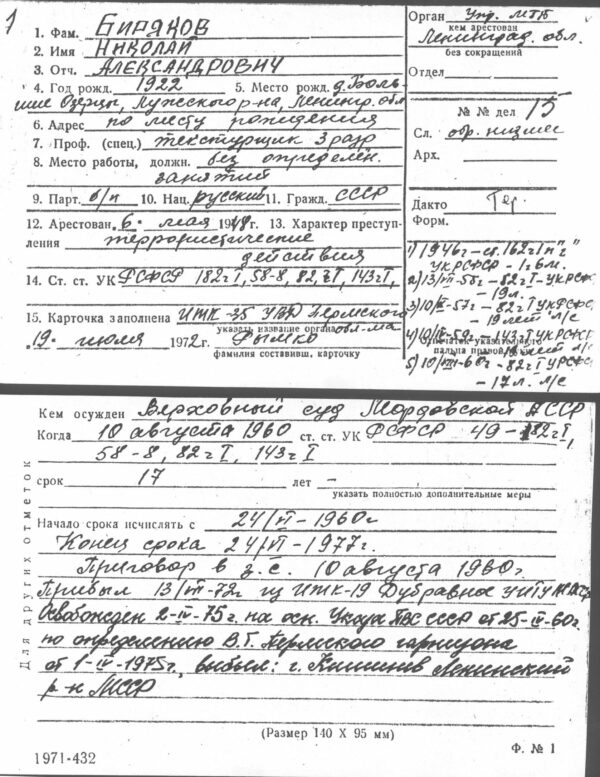 1
1. Фам. БИРЯКОВ
2. Имя НИКОЛАЙ
3. Отч. АЛЕКСАНДРОВИЧ
4. Год рожд. 1922 5. Место рожд. д. Боль-
шие Озерцы, Лужского р-на, Ленингр. обл
6. Адрес по месту рождения
7. Проф. (спец.) текстурщик 3 разр
8. Место работы, должн. без определён.
занятий
9. Парт. б/п 10. Нац. русский 11. Гражд. СССР
12. Арестован „6" мая 1948г. 13. Характер преступ-
ления террористические
действия
14. Ст. ст. УК РСФСР 182ч I, 58-8, 82ч I, 143ч I,
15. Карточка заполнена ИТК-35 УВД Пермского
указать название органа обл-ма
„19" июля 1972г. Рымко
фамилия составивш. карточку
Орган Упр. МГБ
кем арестован
Ленинград. обл.
без сокращений
Отдел
№ № дел 15
Сл. обр. низшее
Арх.
Дакто Тер.
Форм.
1) 1946г – ст. 162ч I п "г"
УК РСФСР - 1г 6м.
2) 13/ -58г - 82ч I - УК РСФСР
- 19 л.
3) 10/ -57г - 82ч I УК РСФСР
19 лет л/с
4) 10/ -59г - 143ч I УК РСФСР
Отпечаток указательного
19 лет л/с
пальца правой руки
5) 10/VIII-60г - 82ч I УК РСФСР
- 17 л. л/с
Кем осужден Верховный суд Мордовской АССР
Когда 10 августа 1960 ст. ст. УК РСФСР 49 - 182ч I,
58-8, 82ч I, 143ч I
срок 17 лет –
указать полностью дополнительные меры
Начало срока исчислять с 24/VI - 1960г
Конец срока 24/VI - 1977г.
Приговор в з.с. 10 августа 1960г.
Прибыл 13/VII-72г из ИТК-19 Дубравное УИТУ
Освобожден 2-IV-75г. на осн. Указа ПВС СССР от 25-IV-60г.
по определению В.Т. Пермского гарнизона
от 1-IV-1975г., выбыл: г. Кишинев Ленинский
р-н МССР
Для других отметок
(Размер 140 X 95 мм)
1971-432
Ф. № 1